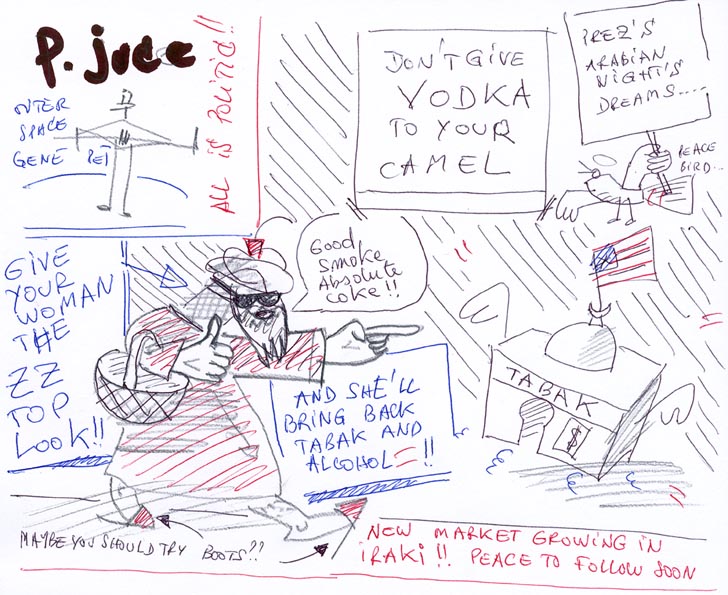 P. juce
ALL iS POLiTiC!!
OUTER
SPACE
GENE PET
DON'T GIVE
VODKA
TO YOUR
CAMEL
PREZ'S
ARABIAN
NIGHT'S
DREAMS....
PEACE
BIRD...
GIVE
YOUR
WOMAN
THE
ZZ
TOP
LOOK!!
Good
Smoke
Absolute
coke!!
AND SHE'LL
BRING BACK
TABAK AND
ALCOHOL = !!
TABAK
$
MAYBE YOU SHOULD TRY BOOTS??
NEW MARKET GROWING IN
iRAKi!! PEACE TO FOLLOW SOON